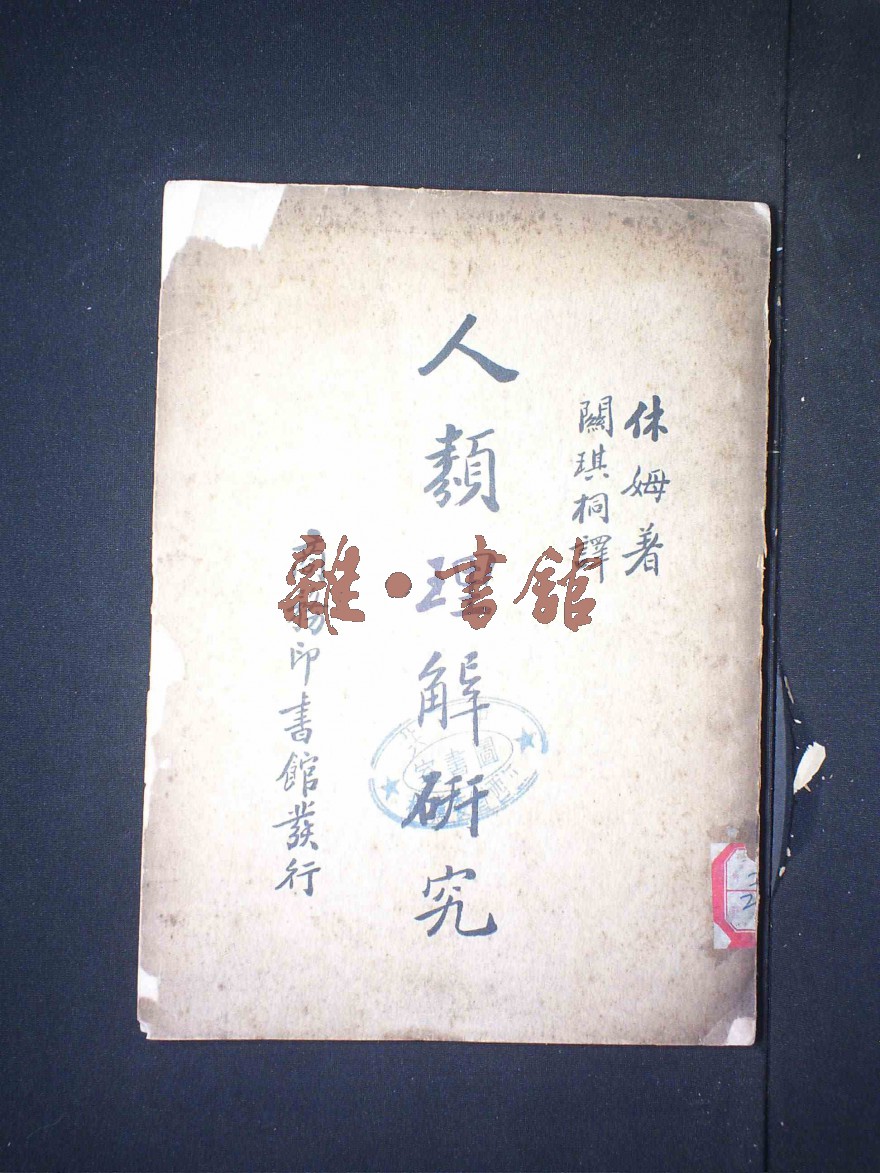 休姆著
關琪桐譯
人類理解研究
商務印書館發行
雜·書館
圖書室